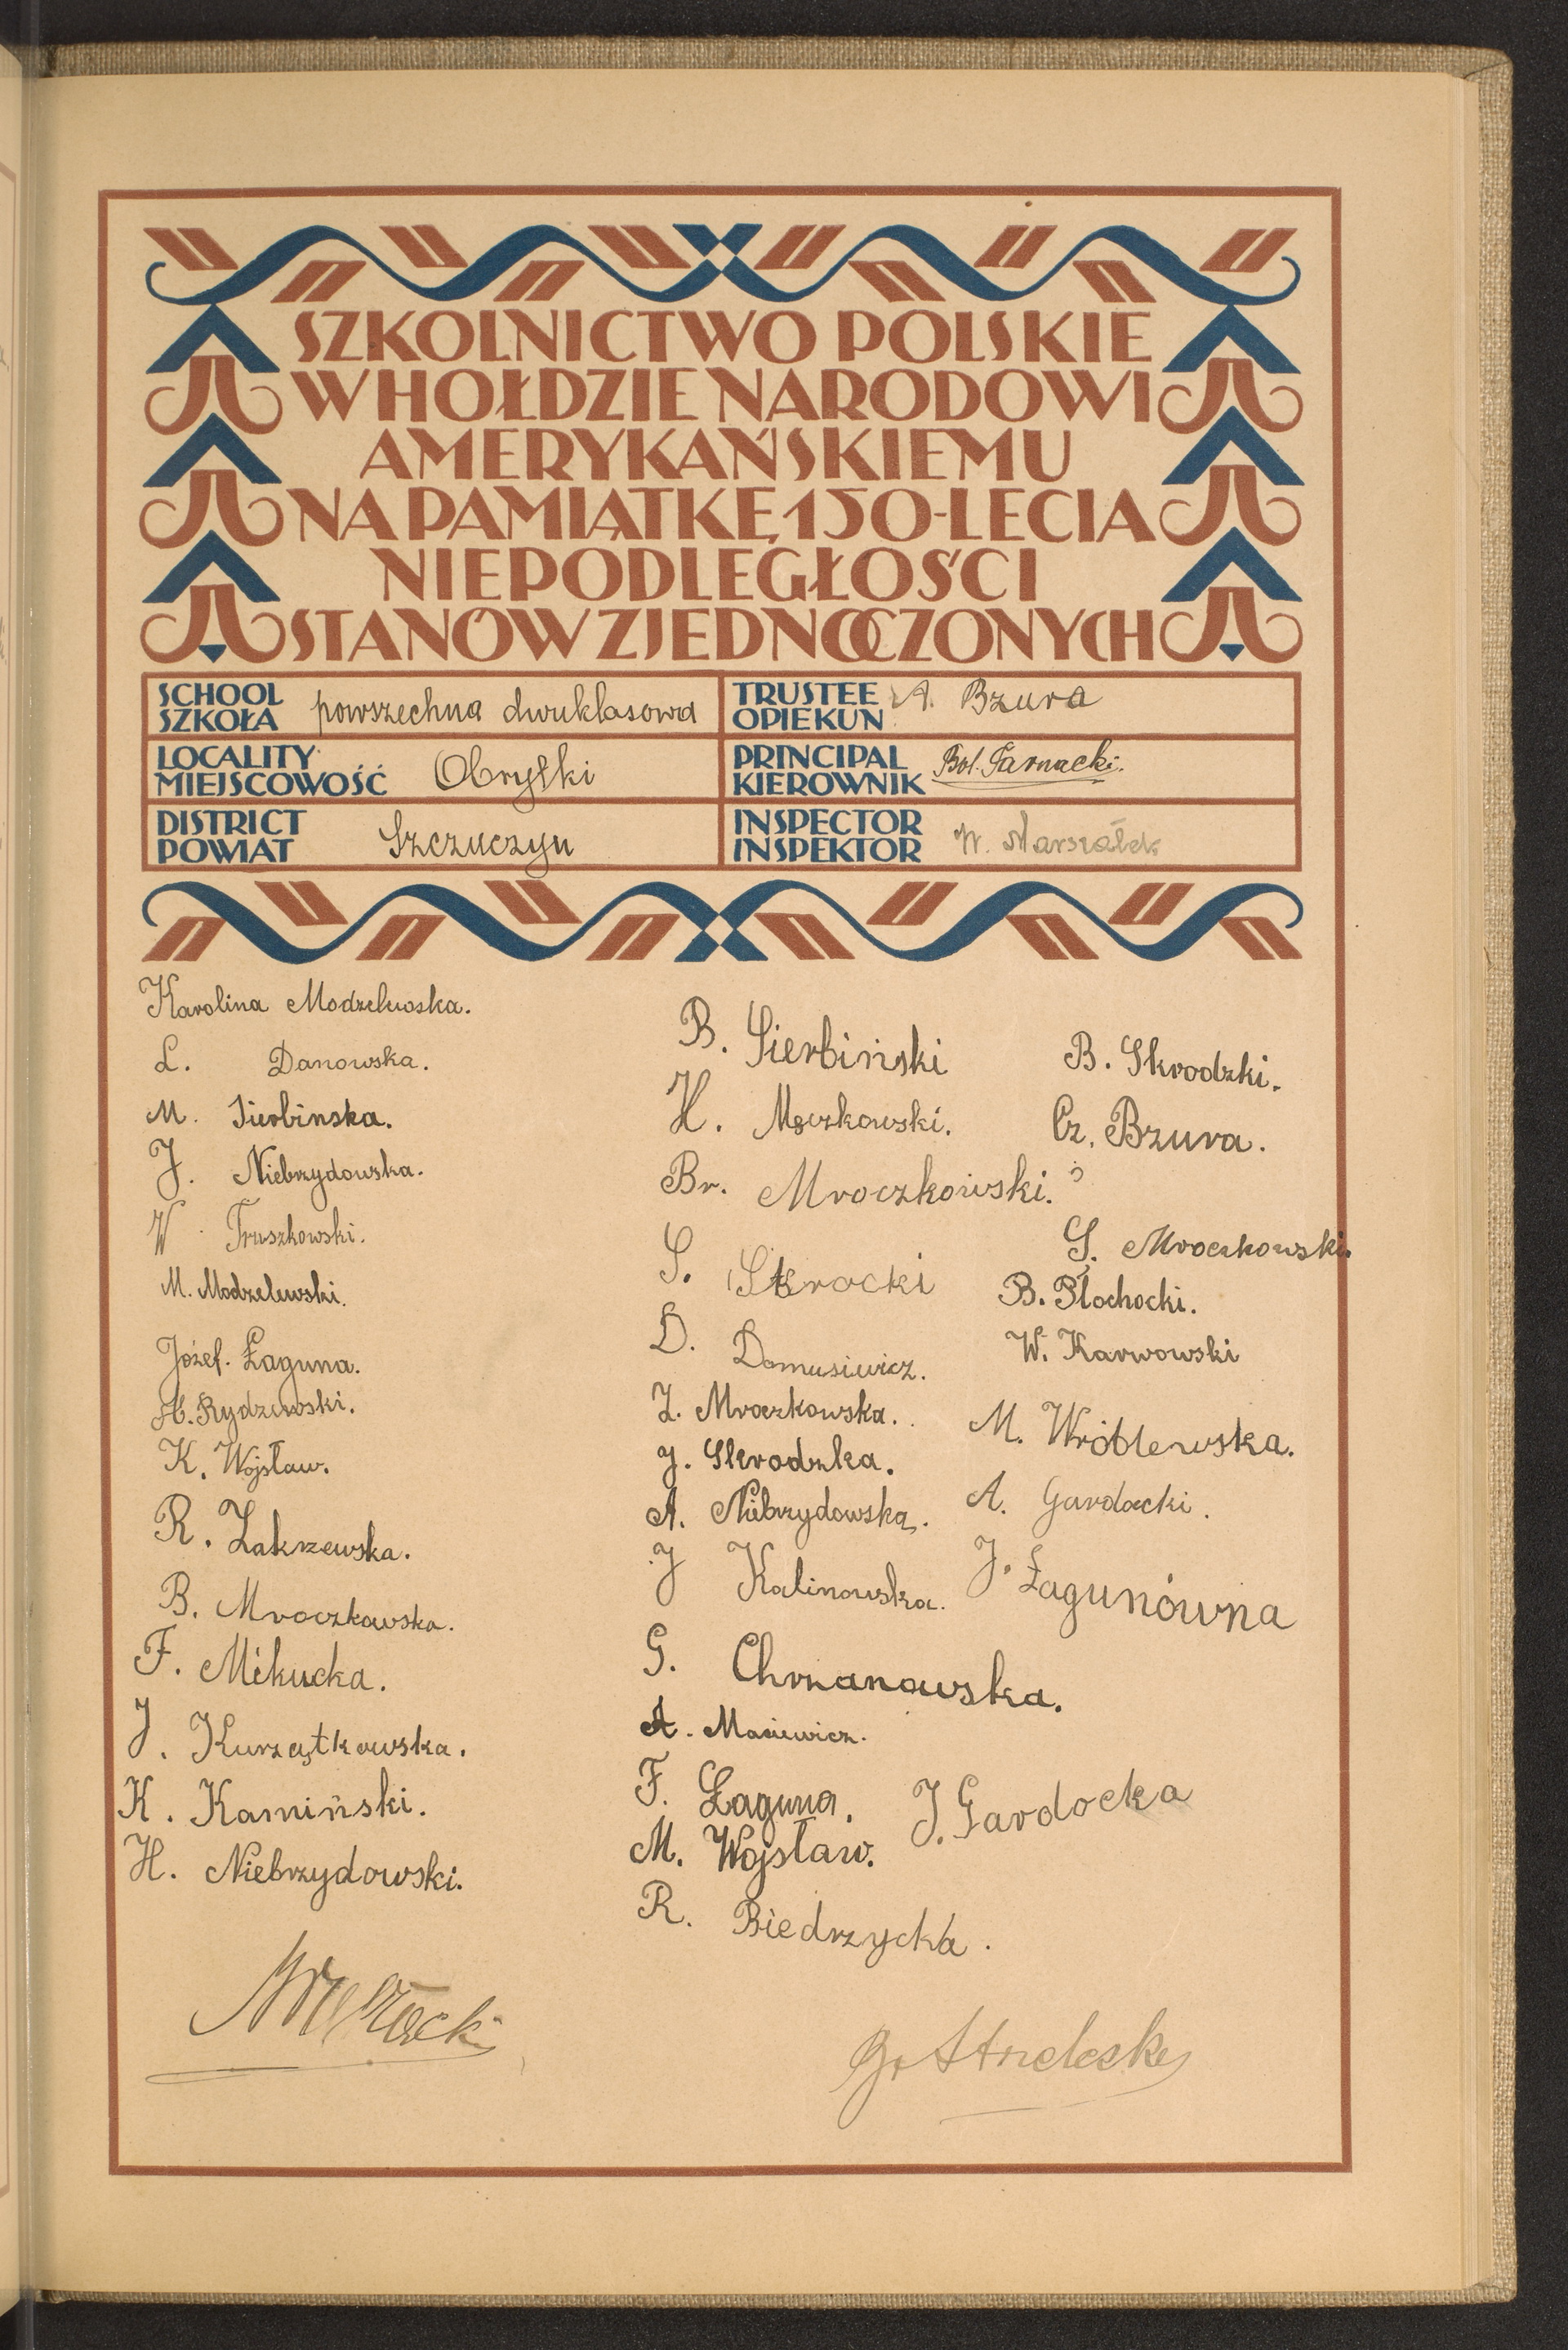 SZKOLNICTWO POLSKIE
W HOŁDZIE NARODOWI
AMERYKAŃSKIEMU
NA PAMIĄTKĘ 150-LECIA
NIEPODLEGŁOŚCI
STANÓW ZJEDNOCZONYCH
SCHOOL
SZKOŁA powszechna dwuklasowa
TRUSTEE
OPIEKUN A. Bzura
LOCALITY
MIEJSCOWOŚĆ Obrytki
PRINCIPAL
KIEROWNIK Bol. Tarnacki.
DISTRICT
POWIAT Szczuczyn
INSPECTOR
INSPEKTOR W. Marszałek
Karolina Modzelewska.
L. Danowska.
M. Sierbinska.
J. Niebrzydowska.
W. Truszkowski.
M. Modzelewski.
Józef. Łaguna.
H. Rydzewski.
K. Wojsław.
R. Zakrzewska.
B. Mroczkowska.
F. Mikucka.
J. Kurzątkowska.
K. Kamiński.
H. Niebrzydowski.
B. Sierbiński
H. Mączkowski.
Br. Mroczkowski.
S. Skrocki
D. Domusiewicz.
Z. Mroczkowska.
J. Skrodzka.
A. Niebrzydowska.
J Kalinowska.
G. Chrzanowska.
A. Masiewicz.
F. Łaguna.
M. Wojsław.
R. Biedrzycka.
B. Skrodzki.
Cz. Bzura.
S. Mroczkowski.
B. Płochocki.
W. Karwowski
M. Wróblewska.
A. Gardocki.
J. Łagunówna
J. Gardocka